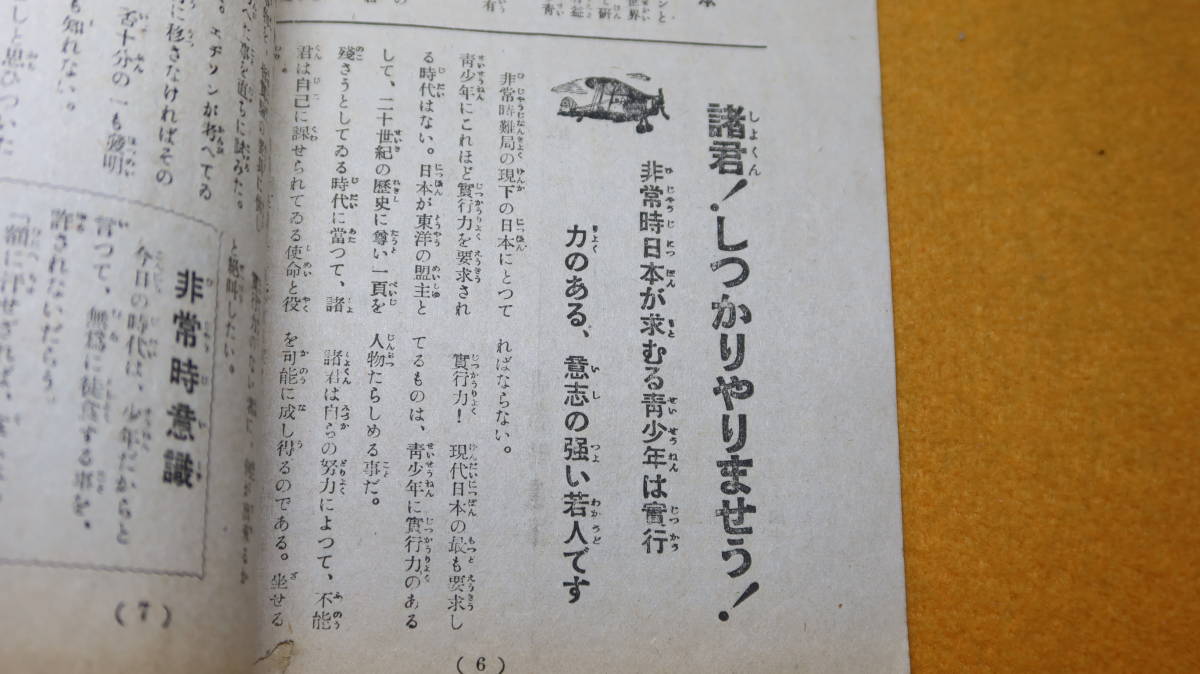 諸君！しつかりやりませう！
非常時日本が求むる青少年は實行
力のある、意志の强い若人です
非常時難局の現下の日本にとつて
靑少年にこれほど實行力を要求され
る時代はない。日本が東洋の盟主と
して、二十世紀の歷史に尊い一頁を
殘さうとしてゐる時代に當つて、諸
君は自己に課せられてゐる使命と役
ればならない。
實行力！　現代日本の最も要求し
てるものは、靑少年に實行力のある
人物たらしめる事だ。
諸君は自らの努力によつて、不能
を可能に成し得るのである。坐せる
(6)
エヂソンが考へてゐ
に移さなければその
舌十分の一も發明
も知れない。
しと思ひついた
と絕叫したい。
非常時意識
今日の時代は、少年だからと
言つて、無爲に徒食する事を、
許されないだらう。
「額に汗せざれば、
(7)